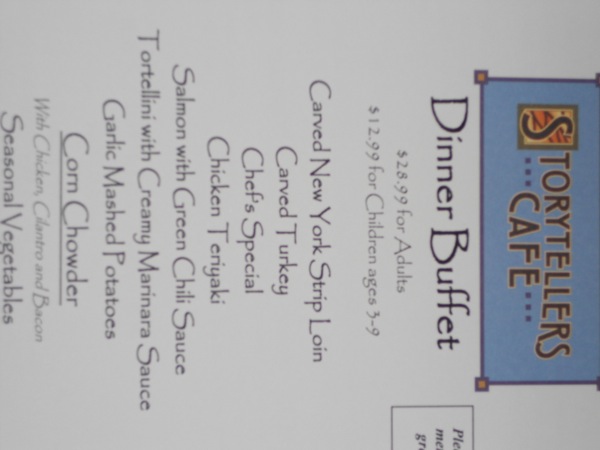 STORYTELLERS
...CAFE...
Dinner Buffet
$28.99 for Adults
$12.99 for Children ages 3-9
Carved New York Strip Loin
Carved Turkey
Chef's Special
Chicken Teriyaki
Salmon with Green Chili Sauce
Tortellini with Creamy Marinara Sauce
Garlic Mashed Potatoes
Corn Chowder
With Chicken, Cilantro and Bacon
Seasonal Vegetables